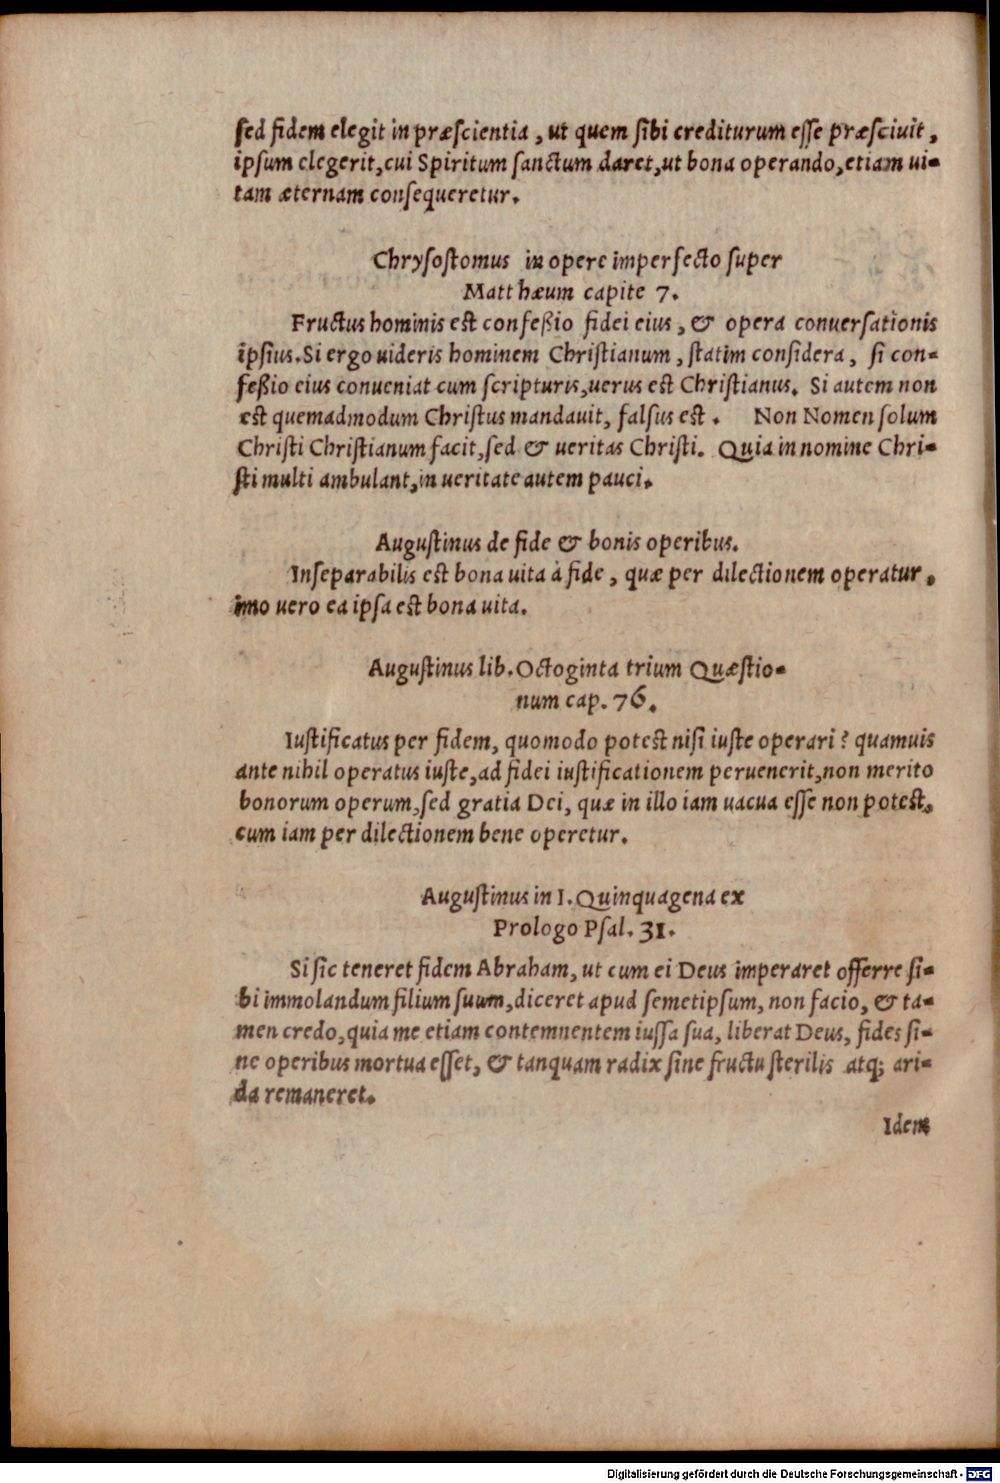 sed fidem elegit in præscientia, ut quem sibi crediturum esse præsciuit,
ipsum elegerit, cui Spiritum sanctum daret, ut bona operando, etiam ui-
tam æternam consequeretur.
Chrysostomus in opere imperfecto super
Matthæum capite 7.
Fructus hominis est confeßio fidei eius, & opera conuersationis
ipsius. Si ergo uideris hominem Christianum, statim considera, si con-
feßio eius conueniat cum scripturis, uerus est Christianus. Si autem non
est quemadmodum Christus mandauit, falsus est. Non Nomen solum
Christi Christianum facit, sed & ueritas Christi. Quia in nomine Chri-
sti multi ambulant, in ueritate autem pauci.
Augustinus de fide & bonis operibus.
Inseparabilis est bona uita à fide, quæ per dilectionem operatur,
imo uero ea ipsa est bona uita.
Augustinus lib. Octoginta trium Quæstio-
num cap. 76.
Iustificatus per fidem, quomodo potest nisi iuste operari? quamuis
ante nihil operatus iuste, ad fidei iustificationem peruenerit, non merito
bonorum operum, sed gratia Dei, quæ in illo iam uacua esse non potest,
cum iam per dilectionem bene operetur.
Augustinus in I. Quinquagena ex
Prologo Psal. 31.
Si sic teneret fidem Abraham, ut cum ei Deus imperaret offerre si-
bi immolandum filium suum, diceret apud semetipsum, non facio, & ta-
men credo, quia me etiam contemnentem iussa sua, liberat Deus, fides si-
ne operibus mortua esset, & tanquam radix sine fructu sterilis atq; ari-
da remaneret.
Idem
Digitalisierung gefördert durch die Deutsche Forschungsgemeinschaft - DFG